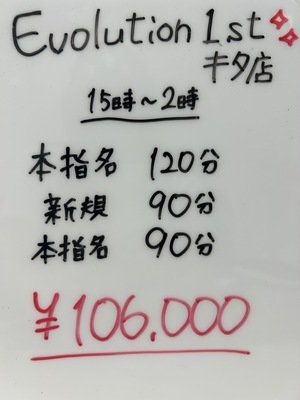 Evolution 1st
キタ店
15時〜2時
本指名 120分
新規 90分
本指名 90分
¥106.000